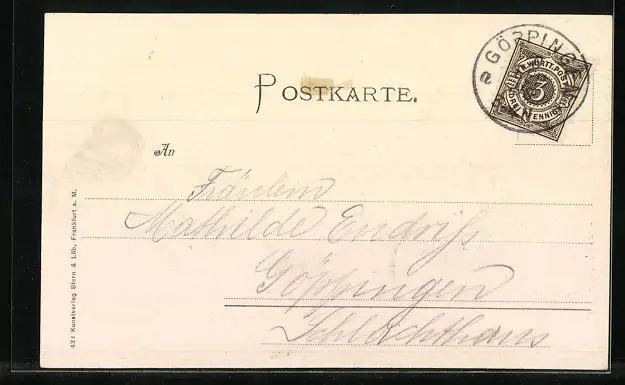 GÖPPINGEN
K. WÜRTT. POST
3
DREI PFENNIG
POSTKARTE.
An
Fräulein
Mathilde Endriß
Göppingen
Schlachthaus
431 Kunstverlag Stern & Löb, Frankfurt a. M.